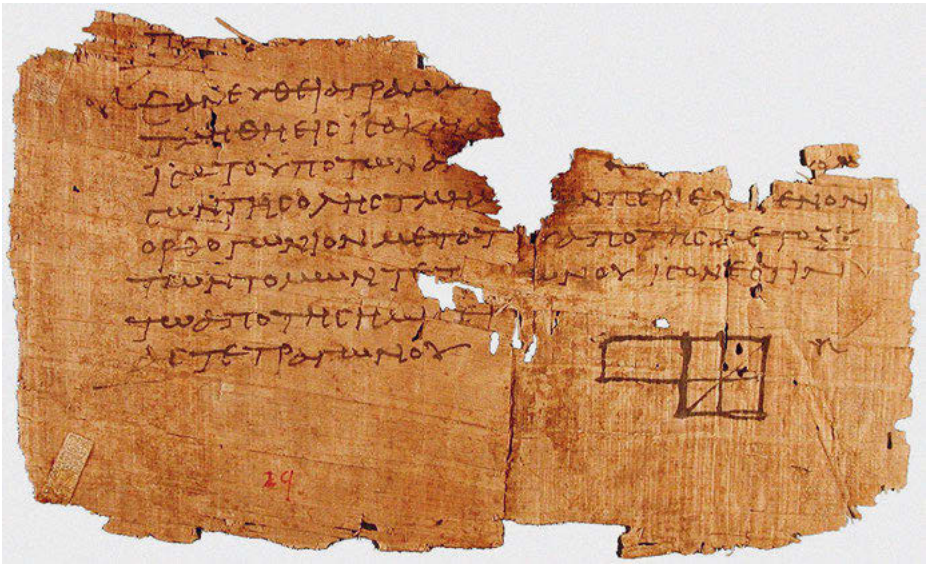 ΕΑΝΕΥΘΕΙΑΓΡΑΜ
ΤΜΗΘΗΕΙϹΙϹΑΚΑΙ
ΙϹΑΤΟΥΠΟΤΩΝΑ
ϹΩΝΤΗϹΟΛΗϹΤΜΗΜ ΝΠΕΡΙΕΧ ΜΕΝΟΝ
ΟΡΘΟΓΩΝΙΟΝΜΕΤΑΤ ΥΑΠΟΤΗϹΜΕΤΟΞΥ
ΤΩΝΤΟΜΩΝΤΕΤ ΩΝΟΥΙϹΟΝΕϹΤΙΝ
ΤΩΑΠΟΤΗϹΗΜΙϹΕΙ
ΑϹΤΕΤΡΑΓΩΝΟΥ
29